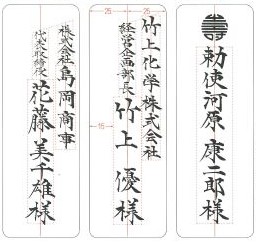 勅使河原 康二郎様
竹上化学株式会社
経営企画部長
竹上 優様
株式会社鳥岡商事
代表取締役
花藤 美千雄様
25
25
15